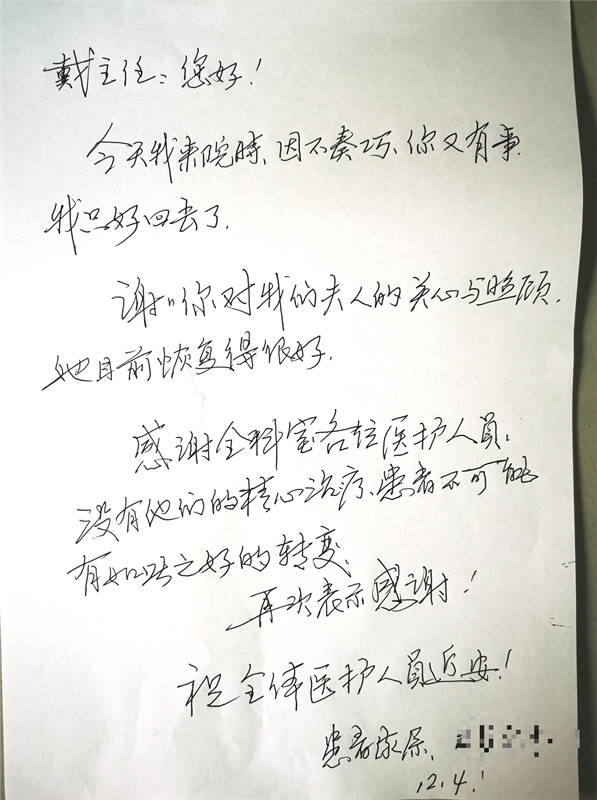 戴主任：您好！
今天我来院時、因不奏巧、你又有事.
我只好回去了.
谢谢你对我的夫人的关心与照顾.
她目前恢复得很好.
感谢全科室各位医护人员.
没有他们的精心治疗、患者不可能
有如此之好的转变、
再次表示感谢！
祝全体医护人员近安！
患者家属.
12.4.!